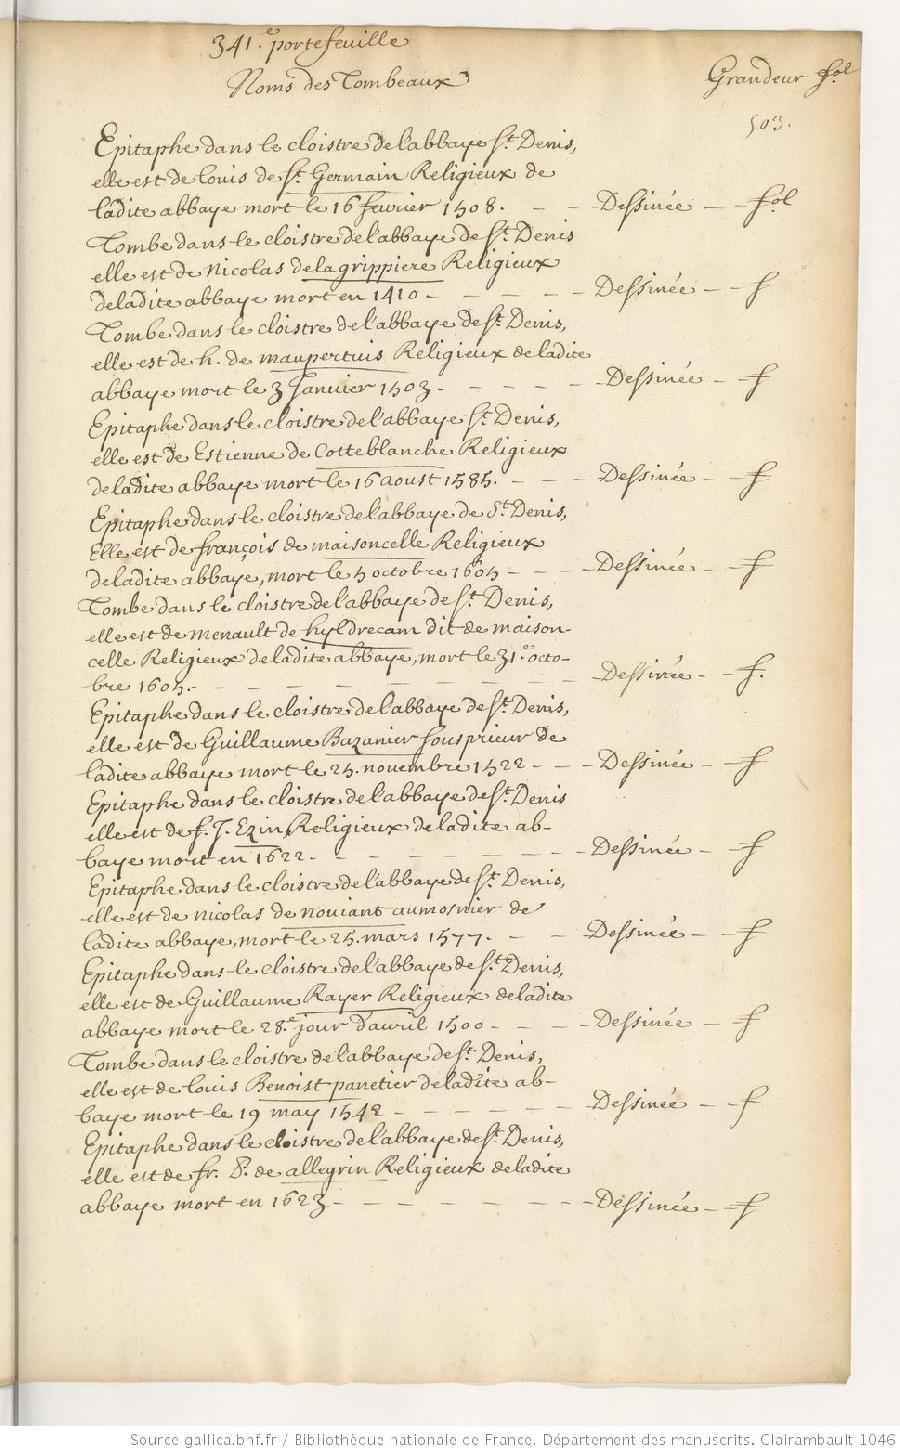 341.e portefeuille
Noms des Tombeaux
Grandeur fol
503.
Epitaphe dans le cloistre de l'abbaye St. Denis,
elle est de Louis de St. Germain Religieux de
ladite abbaye mort le 16 fevrier 1508. - - Dessinée - fol
Tombe dans le cloistre de l'abbaye de St. Denis
elle est de Nicolas delagrippiere Religieux
deladite abbaye mort en 1410 - - - - - Dessinée - f
Tombe dans le cloistre de l'abbaye de St. Denis,
elle est de h. de maupertuis Religieux deladite
abbaye mort le 3 Janvier 1503. - - - - Dessinée - f
Epitaphe dans le cloistre de l'abbaye St. Denis,
elle est de Estienne de Cotteblanche Religieux
deladite abbaye mort le 16 aoust 1585. - - - Dessinée - f
Epitaphe dans le cloistre de l'abbaye de St. Denis,
Elle est de françois de maisoncelle Religieux
deladite abbaye, mort le 5 octobre 1605 - - - Dessinée - f
Tombe dans le cloistre de l'abbaye de St. Denis,
elle est de menault de hyldrecam dit de maison-
celle Religieux deladite abbaye, mort le 31.e octo-
bre 1605. - - - - - - - - Dessinée - f.
Epitaphe dans le cloistre de l'abbaye de St. Denis,
elle est de Guillaume Bazanier sousprieur de
ladite abbaye mort le 25. novembre 1522 - - - Dessinée - f
Epitaphe dans le cloistre de l'abbaye de St. Denis
elle est de f. J. Ezin, Religieux deladite ab-
baye mort en 1622. - - - - - - - Dessinée - f
Epitaphe dans le cloistre de l'abbaye de St. Denis,
elle est de nicolas de noviant aumosnier de
ladite abbaye, mort le 25. mars 1577. - - Dessinée - f
Epitaphe dans le cloistre de l'abbaye de St. Denis,
elle est de Guillaume Rayer Religieux deladite
abbaye mort le 28.e jour d'avril 1500 - - - Dessinée - f
Tombe dans le cloistre de l'abbaye de St. Denis,
elle est de Louis Benoist panetier deladite ab-
baye mort le 19 may 1542 - - - - - Dessinée - f
Epitaphe dans le cloistre de l'abbaye de St. Denis,
elle est de fr. P. de allegrin Religieux deladite
abbaye mort en 1623 - - - - - - - Dessinée - f
Source gallica.bnf.fr / Bibliothèque nationale de France. Département des manuscrits. Clairambault 1046